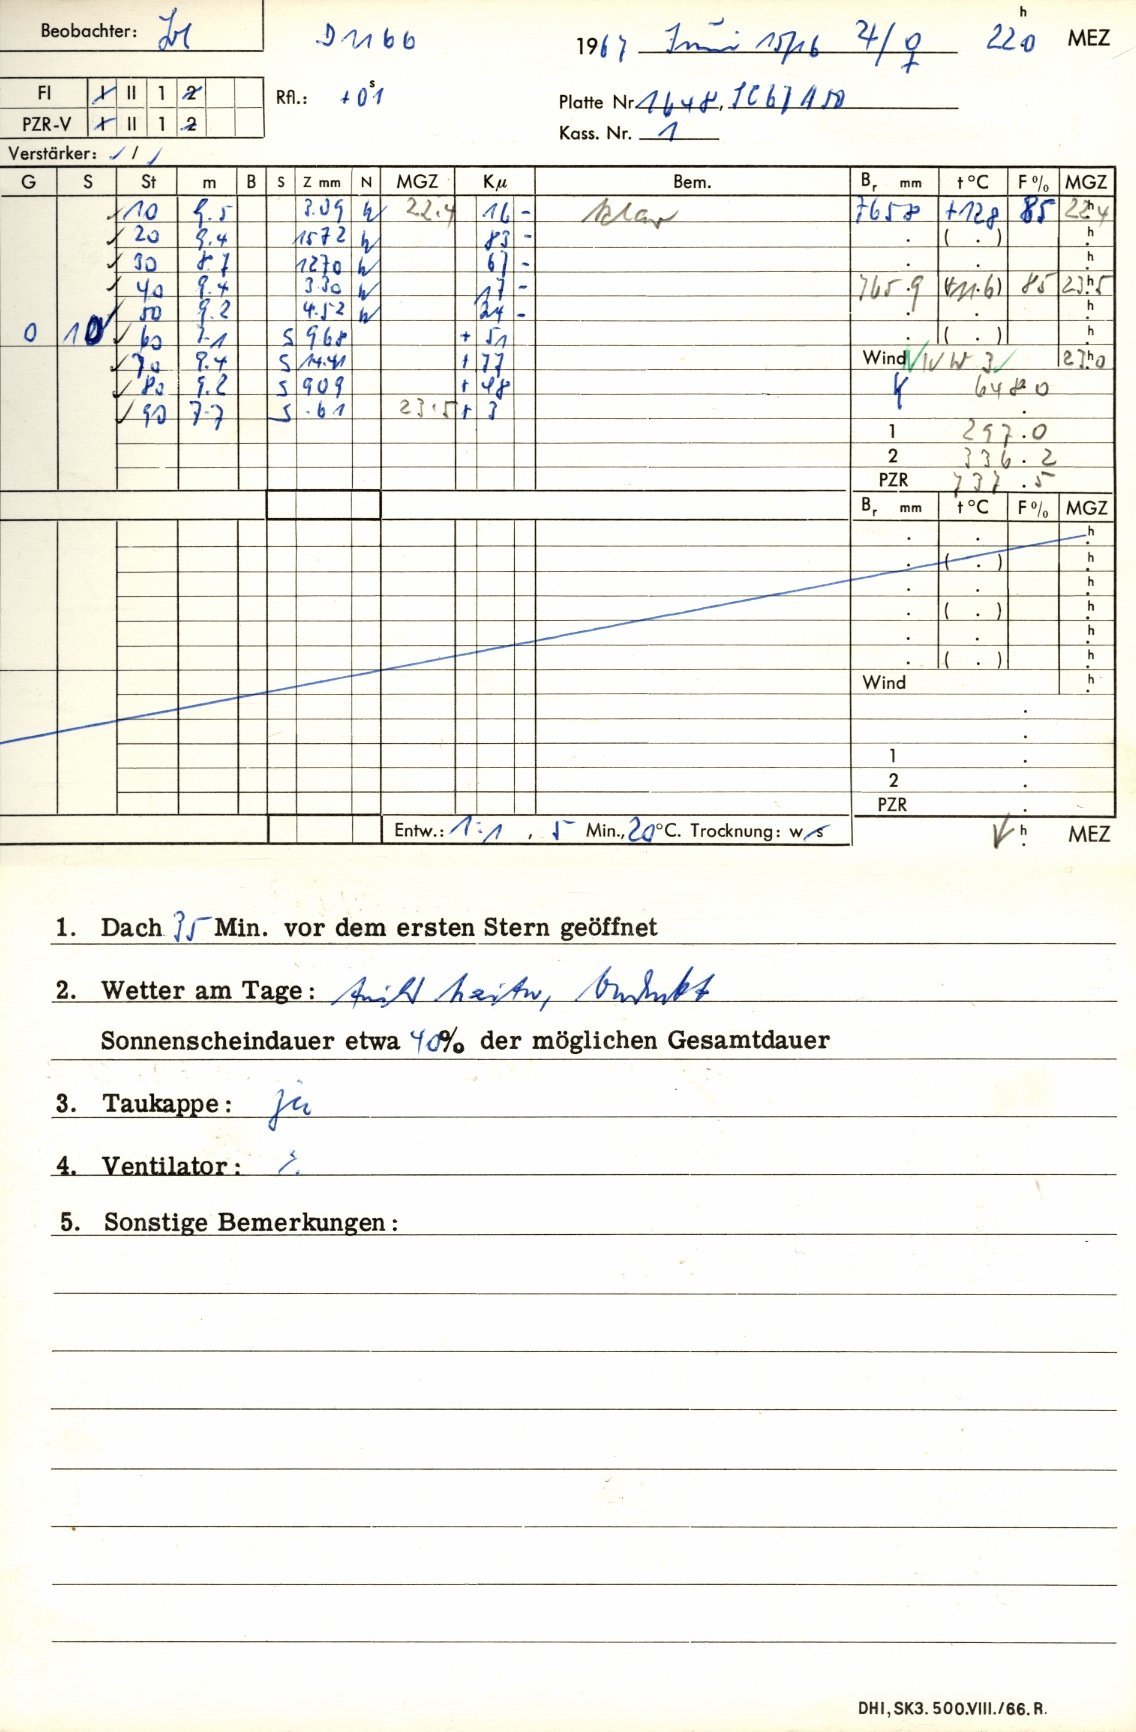 Beobachter:
D1166
1967 Juni 15/16 ♃/♀ 22h0 MEZ
FI I II 1 2
Rfl.: +0s1
Platte Nr. 1648, SC67A50
PZR-V I II 1 2
Kass. Nr. 1
Verstärker: /
G S St m B S Z mm N MGZ Kμ Bem. Br mm t°C F% MGZ
10 9.5 3.09 N 22.4 16 - klar 765 8 +12 8 85 22h4
20 9.4 1572 N 83 - . ( . ) h
30 8.7 1270 N 67 - . . h
40 9.4 3.30 N 17 - 765.9 (+11.6) 85 23h5
50 9.2 4.52 N 24 - . . h
0 10 60 7.1 S 9.68 + 51 . ( . ) h
70 9.4 S 14.41 + 77 Wind NW 3 23h0
80 9.2 S 909 + 48 648.0
90 7.7 S .61 23.5 + 3 .
1 297.0
2 336.2
PZR 737.5
Br mm t°C F% MGZ
. . h
. ( . ) h
. . h
. ( . ) h
. . h
. ( . ) h
Wind h
.
.
1 .
2 .
PZR .
Entw.: 1:1 , 5 Min., 20°C. Trocknung: w/s
h MEZ
1. Dach 35 Min. vor dem ersten Stern geöffnet
2. Wetter am Tage: heiter, bedeckt
Sonnenscheindauer etwa 40% der möglichen Gesamtdauer
3. Taukappe: ja
4. Ventilator: ⁒
5. Sonstige Bemerkungen:
DHI, SK3. 500.VIII./66. R.